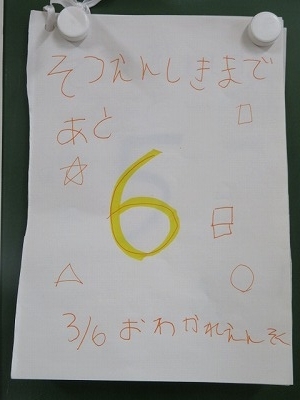 そつえんしきまで
あと
6日
3/6 おわかれえんそく